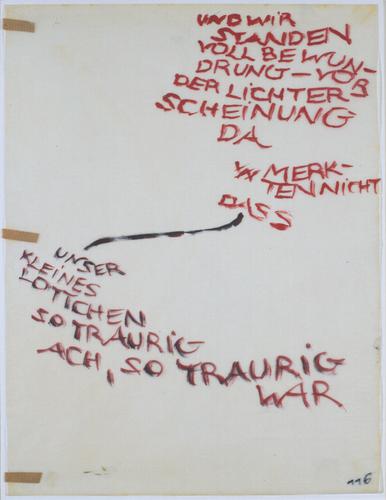 UND WIR
STANDEN
VOLL BEWUN-
DRUNG – VOR
DER LICHTER
SCHEINUNG
DA
MERK-
TEN NICHT
DASS
UNSER
KLEINES
LOTTCHEN
SO TRAURIG
ACH, SO TRAURIG
WAR
116